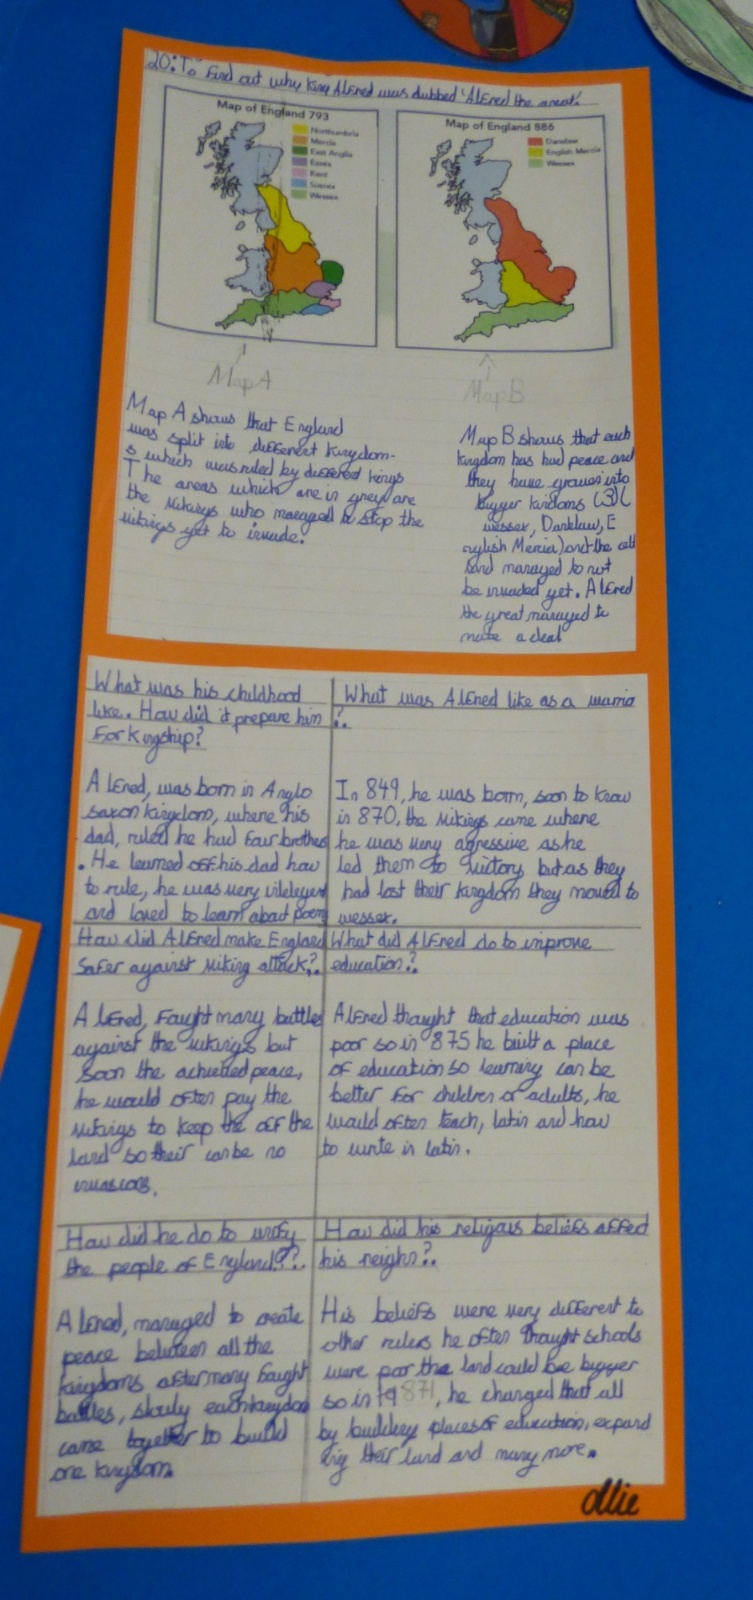 20: To find out why King Alfred was dubbed 'Alfred the great'.
Map of England 793
Northumbria
Mercia
East Anglia
Essex
Kent
Sussex
Wessex
Map of England 886
Danelaw
English Mercia
Wessex
Map A
Map B
Map A shows that England
was split into different kingdom-
s which was ruled by different kings
The areas which are in grey are
the vikings who managed to stop the
vikings yet to invade.
Map B shows that each
kingdom has had peace and
they have grown into
bigger kindoms (3) (
wessex, Danklaw, E
nglish Mercia) and the celt
land managed to not
be invaded yet. Alfred
the great managed to
make a deal
What was his childhood
like. How did it prepare him
for kingship?
Alfred, was born in Anglo
saxon kingdom, where his
dad, ruled he had four brothers
. He learned off his dad how
to rule, he was very
and loved to learn about poems
What was Alfred like as a warrio
?.
In 849, he was born, soon to know
in 870, the vikings came where
he was very agressive as he
led them to victory but as they
had lost their kingdom they moved to
wessex.
How did Alfred make England
safer against viking attack?.
Alfred, fought many battles
against the vikings but
soon the achieved peace,
he would often pay the
vikings to keep the off the
land so their can be no
invasions.
What did Alfred do to improve
education.?
Alfred thought that education was
poor so in 875 he built a place
of education so learning can be
better for children or adults, he
would often teach, latin and how
to write in latin.
How did he do to unify
the people of England??.
Alfred, managed to create
peace between all the
kingdoms after many fought
battles, slowly each kingdom
came together to build
one kingdom.
How did his religous beliefs affect
his reighn?.
His beliefs were very different to
other rulers he often thought schools
were poor the land could be bigger
so in 871, he changed that all
by building places of education, expand
ing their land and many more.
Ollie